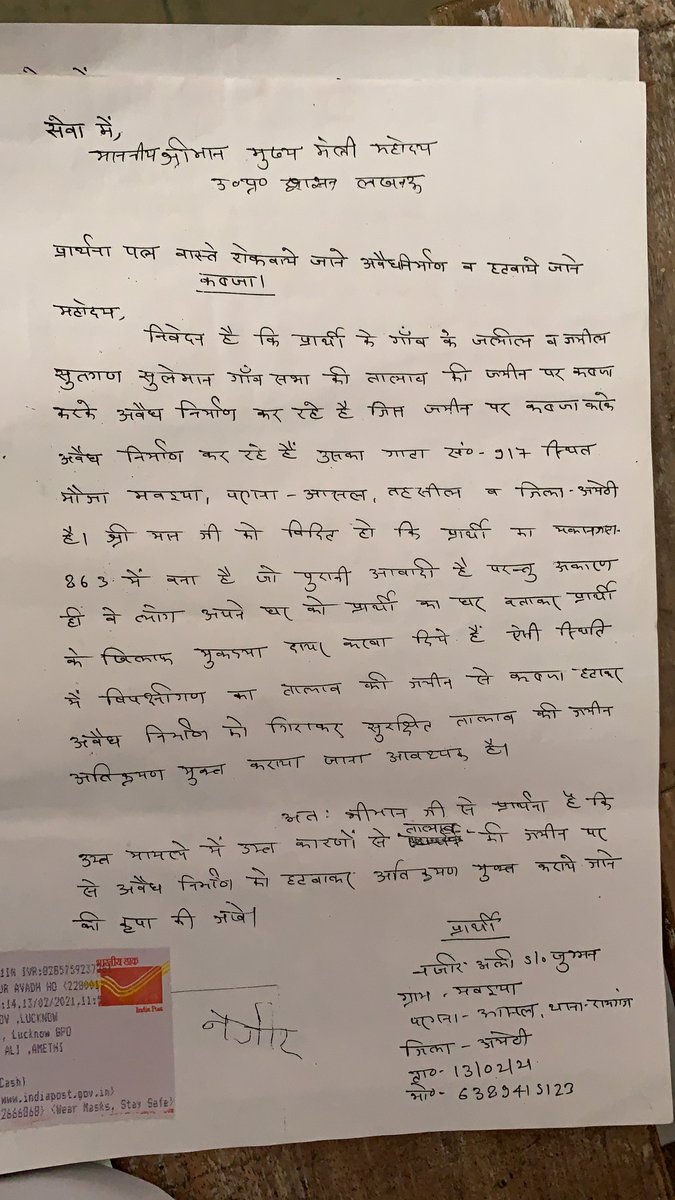 सेवा में,
माननीय श्रीमान मुख्य मंत्री महोदय
उ०प्र० शासन लखनऊ
प्रार्थना पत्र वास्ते रोकवाये जाने अवैध निर्माण व हटवाये जाने
कब्जा।
महोदय,
निवेदन है कि प्रार्थी के गाँव के जलील व जमील
सुतगण सुलेमान गाँव सभा की तालाब की जमीन पर कब्जा
करके अवैध निर्माण कर रहे है जिस जमीन पर कब्जा करके
अवैध निर्माण कर रहे हैं उसका गाटा सं०- 917 स्थित
मौजा मवइया, परगना - आसल, तहसील व जिला - अमेठी
है। श्री मान जी को विदित हो कि प्रार्थी का मकान गाटा-
863 में बना है जो पुरानी आबादी है परन्तु अकारण
ही वे लोग अपने घर को प्रार्थी का घर बताकर प्रार्थी
के खिलाफ मुकदमा दायर करवा दिये हैं ऐसी स्थिति
में विपक्षीगण का तालाब की जमीन से कब्जा हटाकर
अवैध निर्माण को गिराकर सुरक्षित तालाब की जमीन
अतिक्रमण मुक्त कराया जाना आवश्यक है।
अतः श्रीमान जी से प्रार्थना है कि
उक्त मामले में उक्त कारणों से तालाब की जमीन पर
से अवैध निर्माण को हटवाकर अतिक्रमण मुक्त कराये जाने
की कृपा की जावे।
प्रार्थी
नजीर अली s/o जुम्मन
ग्राम - मवइया
परगना - आसल, थाना - रामगंज
जिला - अमेठी
ता०- 13/02/21
मो०- 6389415123
नजीर
भारतीय डाक
India Post
IIN IVR:8285759237
UR AVADH HO <22800
:14,13/02/2021,11:
OV ,LUCKNOW
, Lucknow GPO
ALI ,AMETHI
Cash)
www.indiapost.gov.in>
2666868> <Wear Masks, Stay Safe>